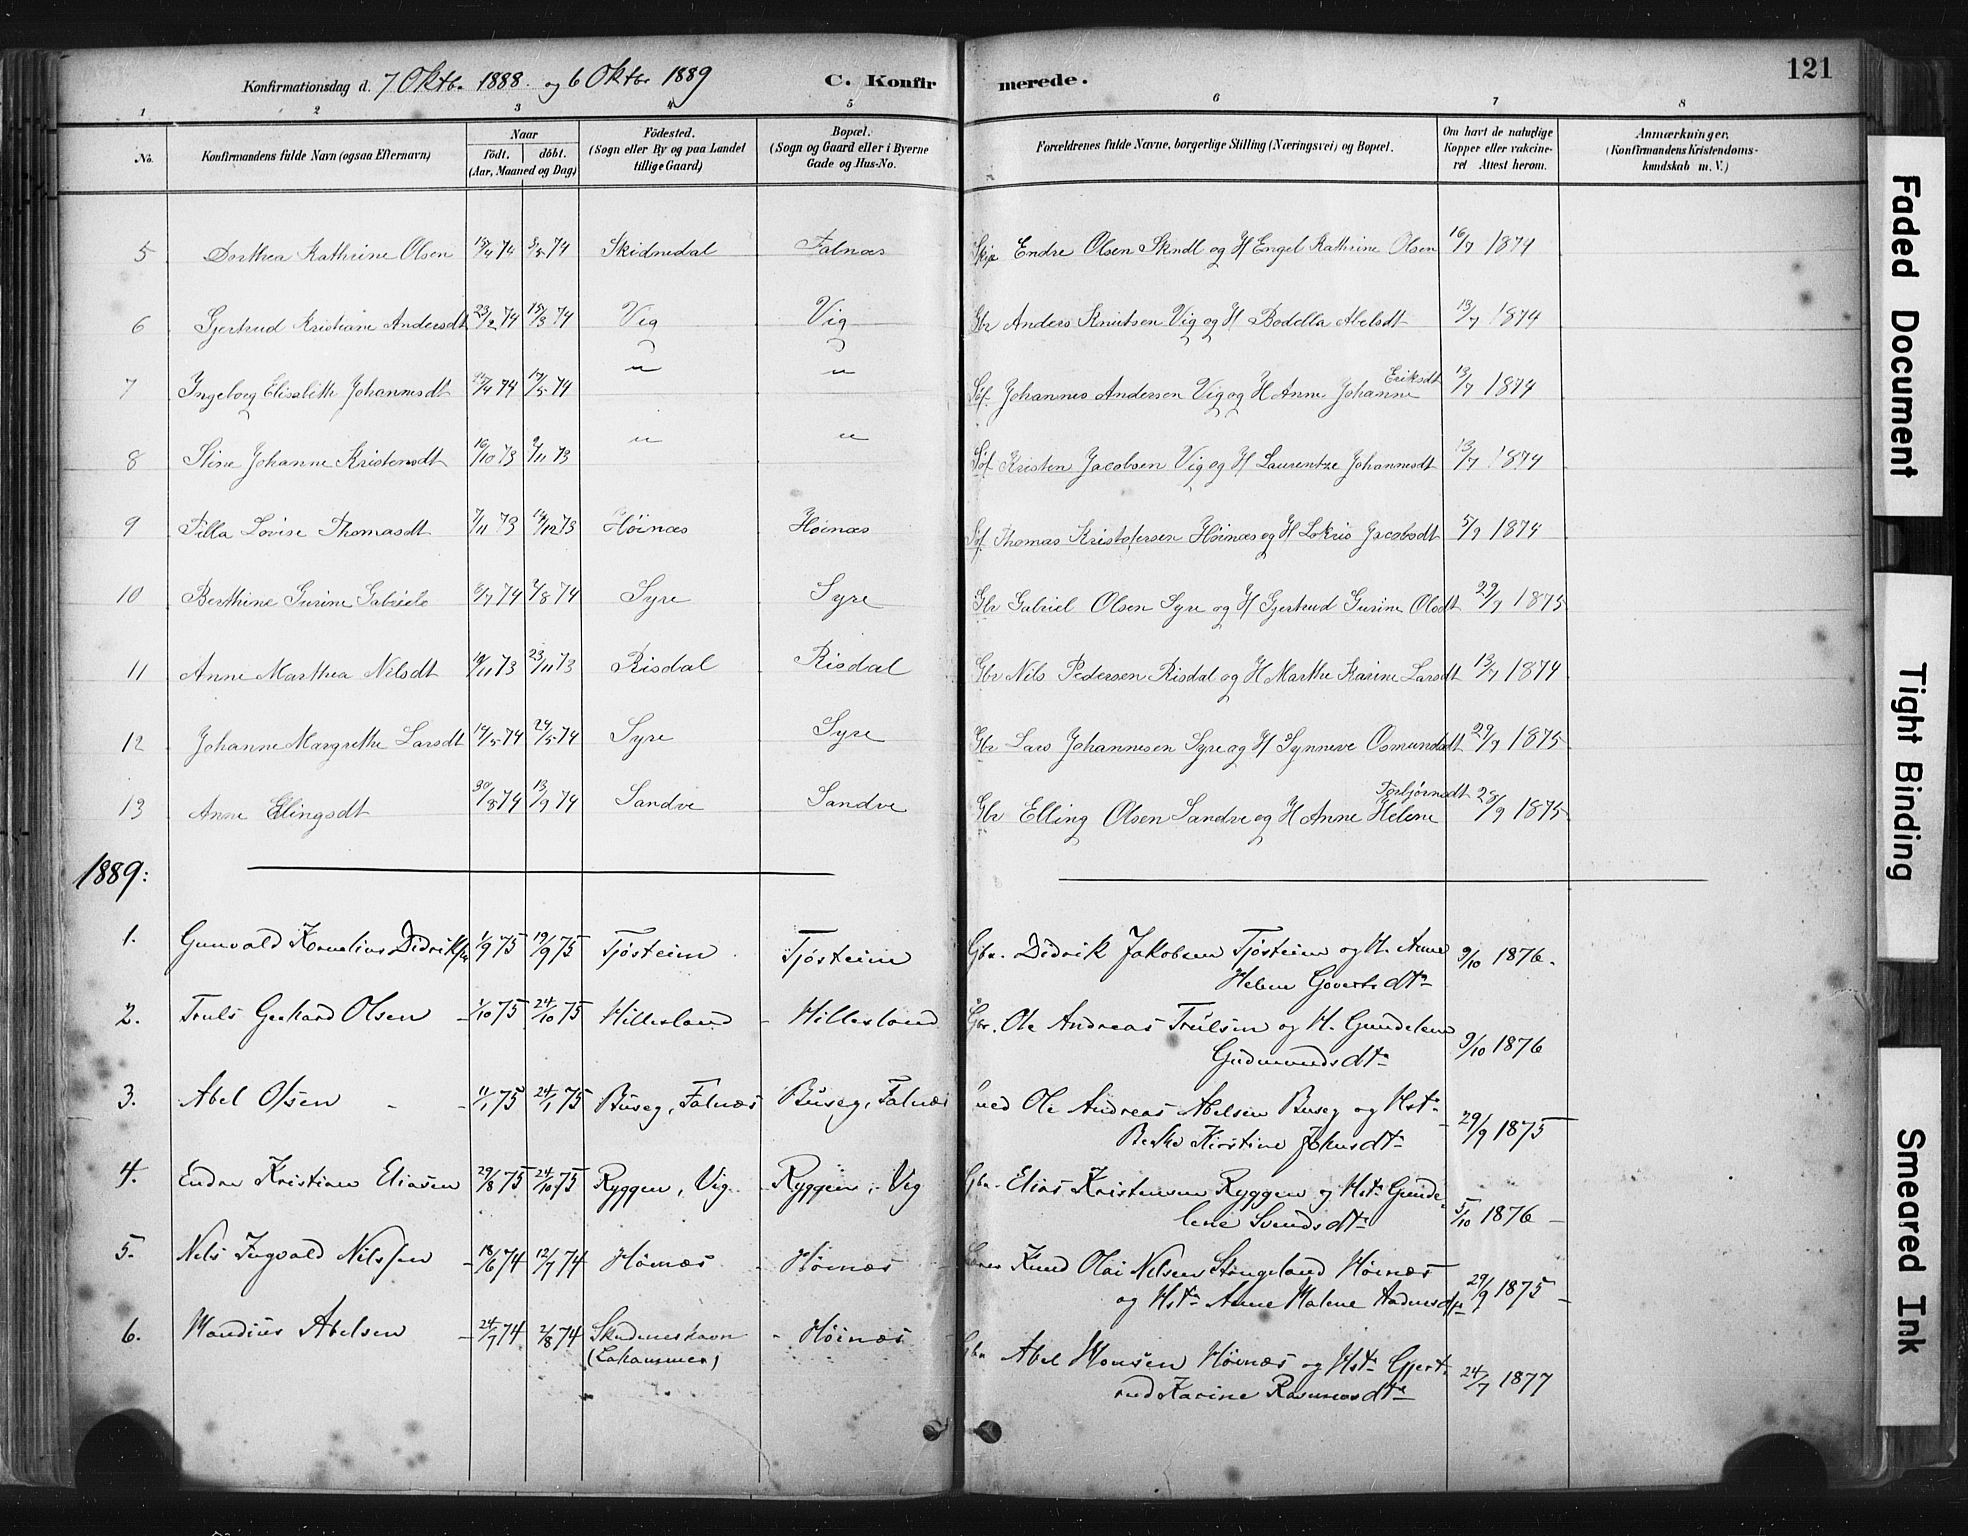 Konfirmationsdag d. 7 Oktbr. 1888 og 6 Oktbr 1889 C. Konfir merede. 121
1 2 3 4 5 6 7 8
No. Konfirmandens fulde Navn (ogsaa Efternavn) Naar födt. döbt. (Aar, Maaned og Dag) Födested. (Sogn eller By og paa Landet tillige Gaard) Bopæl. (Sogn og Gaard eller i Byerne Gade og Hus-No. Forældrenes fulde Navne, borgerlige Stilling (Næringsvei) og Bopæl. Om havt de naturlige Kopper eller vakcineret Attest herom. Anmærkninger. (Konfirmandens Kristendomskundskab m. V.)
5 Dorthea Kathrine Olsen 74 74 Skidnedal Falnæs Endre Olsen Skndl og H Engel Kathrine Olsen 16/7 1874
6 Gjertrud Kristiane Andersdt 23/2 74 15/3 74 Vig Vig Gbr Anders Knutsen Vig og H Bodella Abelsdt 13/7 1874
Eriksdt
7 Ingeborg Elisabeth Johannesdt 74 17/5 74 " " Johannes Andersen Vig og H Anne Johanne 13/7 1874
8 Stine Johanne Kristensdt 16/10 73 9/11 73 " " Kristen Jacobsen Vig og H Laurentze Johannesdt 13/7 1874
9 Tilla Lovise Thomasdt 7/11 73 14/12 73 Höinæs Höinæs Thomas Kristofersen Höinæs og H Lokris Jacobsdt 5/9 1874
10 Berthine Gurine Gabriels 74 74 Syre Syre Gbr Gabriel Olsen Syre og H Gjertrud Gurine Olsdt 29/7 1875
11 Anne Marthea Nilsdt 73 23/11 73 Risdal Risdal Gbr Nils Pedersen Risdal og H Marthe Karine Larsdt 13/7 1874
12 Johanne Margrethe Larsdt 14/5 74 24/5 74 Syre Syre Gbr Lars Johannesen Syre og H Synneve Osmundsdt 29/7 1875
Torbjørnsdt
13 Anne Ellingsdt 30/8 74 13/9 74 Sandve Sandve Gbr Elling Olsen Sandve og H Anne Helene 28/9 1875
1889:
1. Gunvald Kornelius Didriksen 1/9 75 19/9 75 Tjösteim Tjösteim Gbr. Didrik Jakobsen Tjösteim og H. Anne 9/10 1876.
Helene Govertsdtr
2. Truls Gerhard Olsen 1/10 75 24/10 75 Hillesland Hillesland Gbr. Ole Andreas Trulsen og H. Gundelene 9/10 1876
Gudmundsdtr
3. Abel Olsen 11/1 75 24/1 75 Buseg, Falnæs Buseg, Falnæs Ole Andreas Abelsen Buseg og Hstr 29/9 1875
Kirstine Johnsdtr
4. Endre Kristian Eliasen 29/8 75 24/10 75 Ryggen, Vig Ryggen, Vig Gbr. Elias Kristensen Ryggen og Hstr Gunde- 5/10 1876
lene Svendsdtr
5. Nils Ingvald Nilssen 18/6 74 12/7 74 Höinæs Höinæs Knud Olai Nilsen Stongeland Höinæs 29/9 1875
og Hstr Anne Malene
6. Mandius Abelsen 24/7 74 2/8 74 Skudeneshavn Höinæs Gbr Abel Monsen Höinæs og Hstr Gjert- 24/7 1877
(Lahammer) rud Karine Rasmusdtr
Faded Document
Tight Binding
Smeared Ink